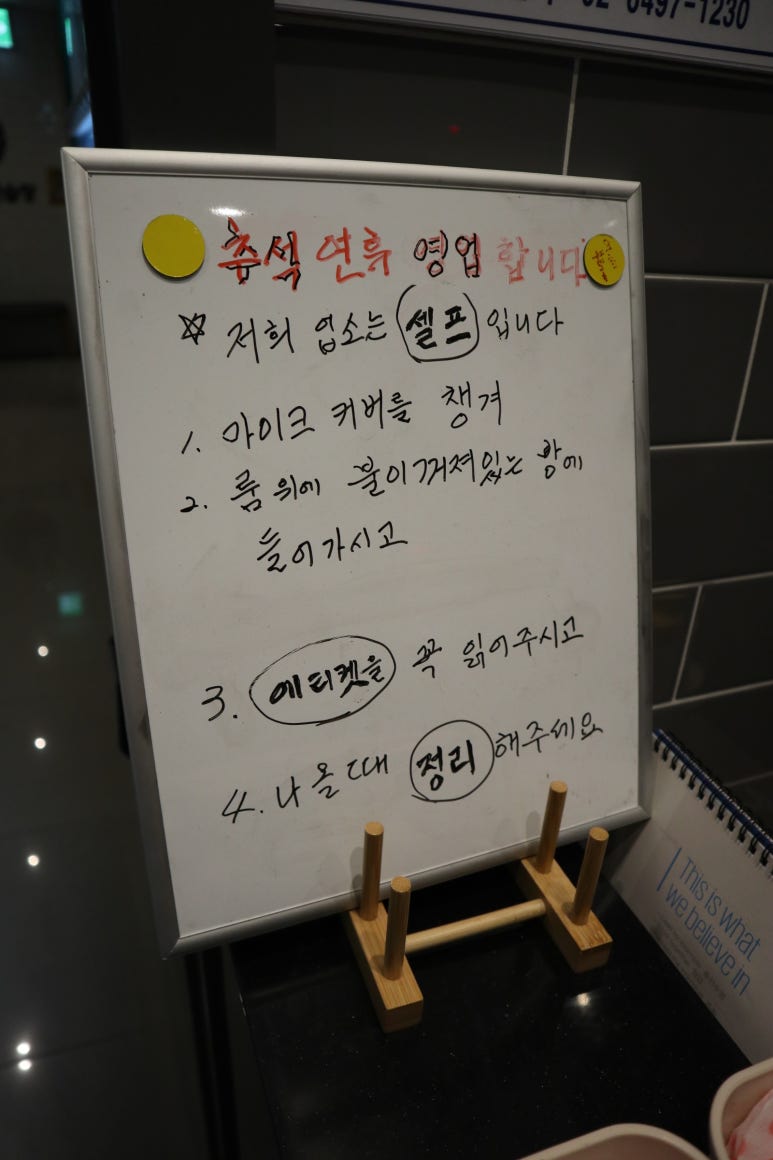 6497-1230
추석 연휴 영업 합니다
☆ 저희 업소는 셀프 입니다
1. 마이크 커버를 챙겨
2. 룸 위에 불이 꺼져있는 방에
들어가시고
3. 에티켓을 꼭 읽어주시고
4. 나올때 정리해주세요
This is what
we believe in